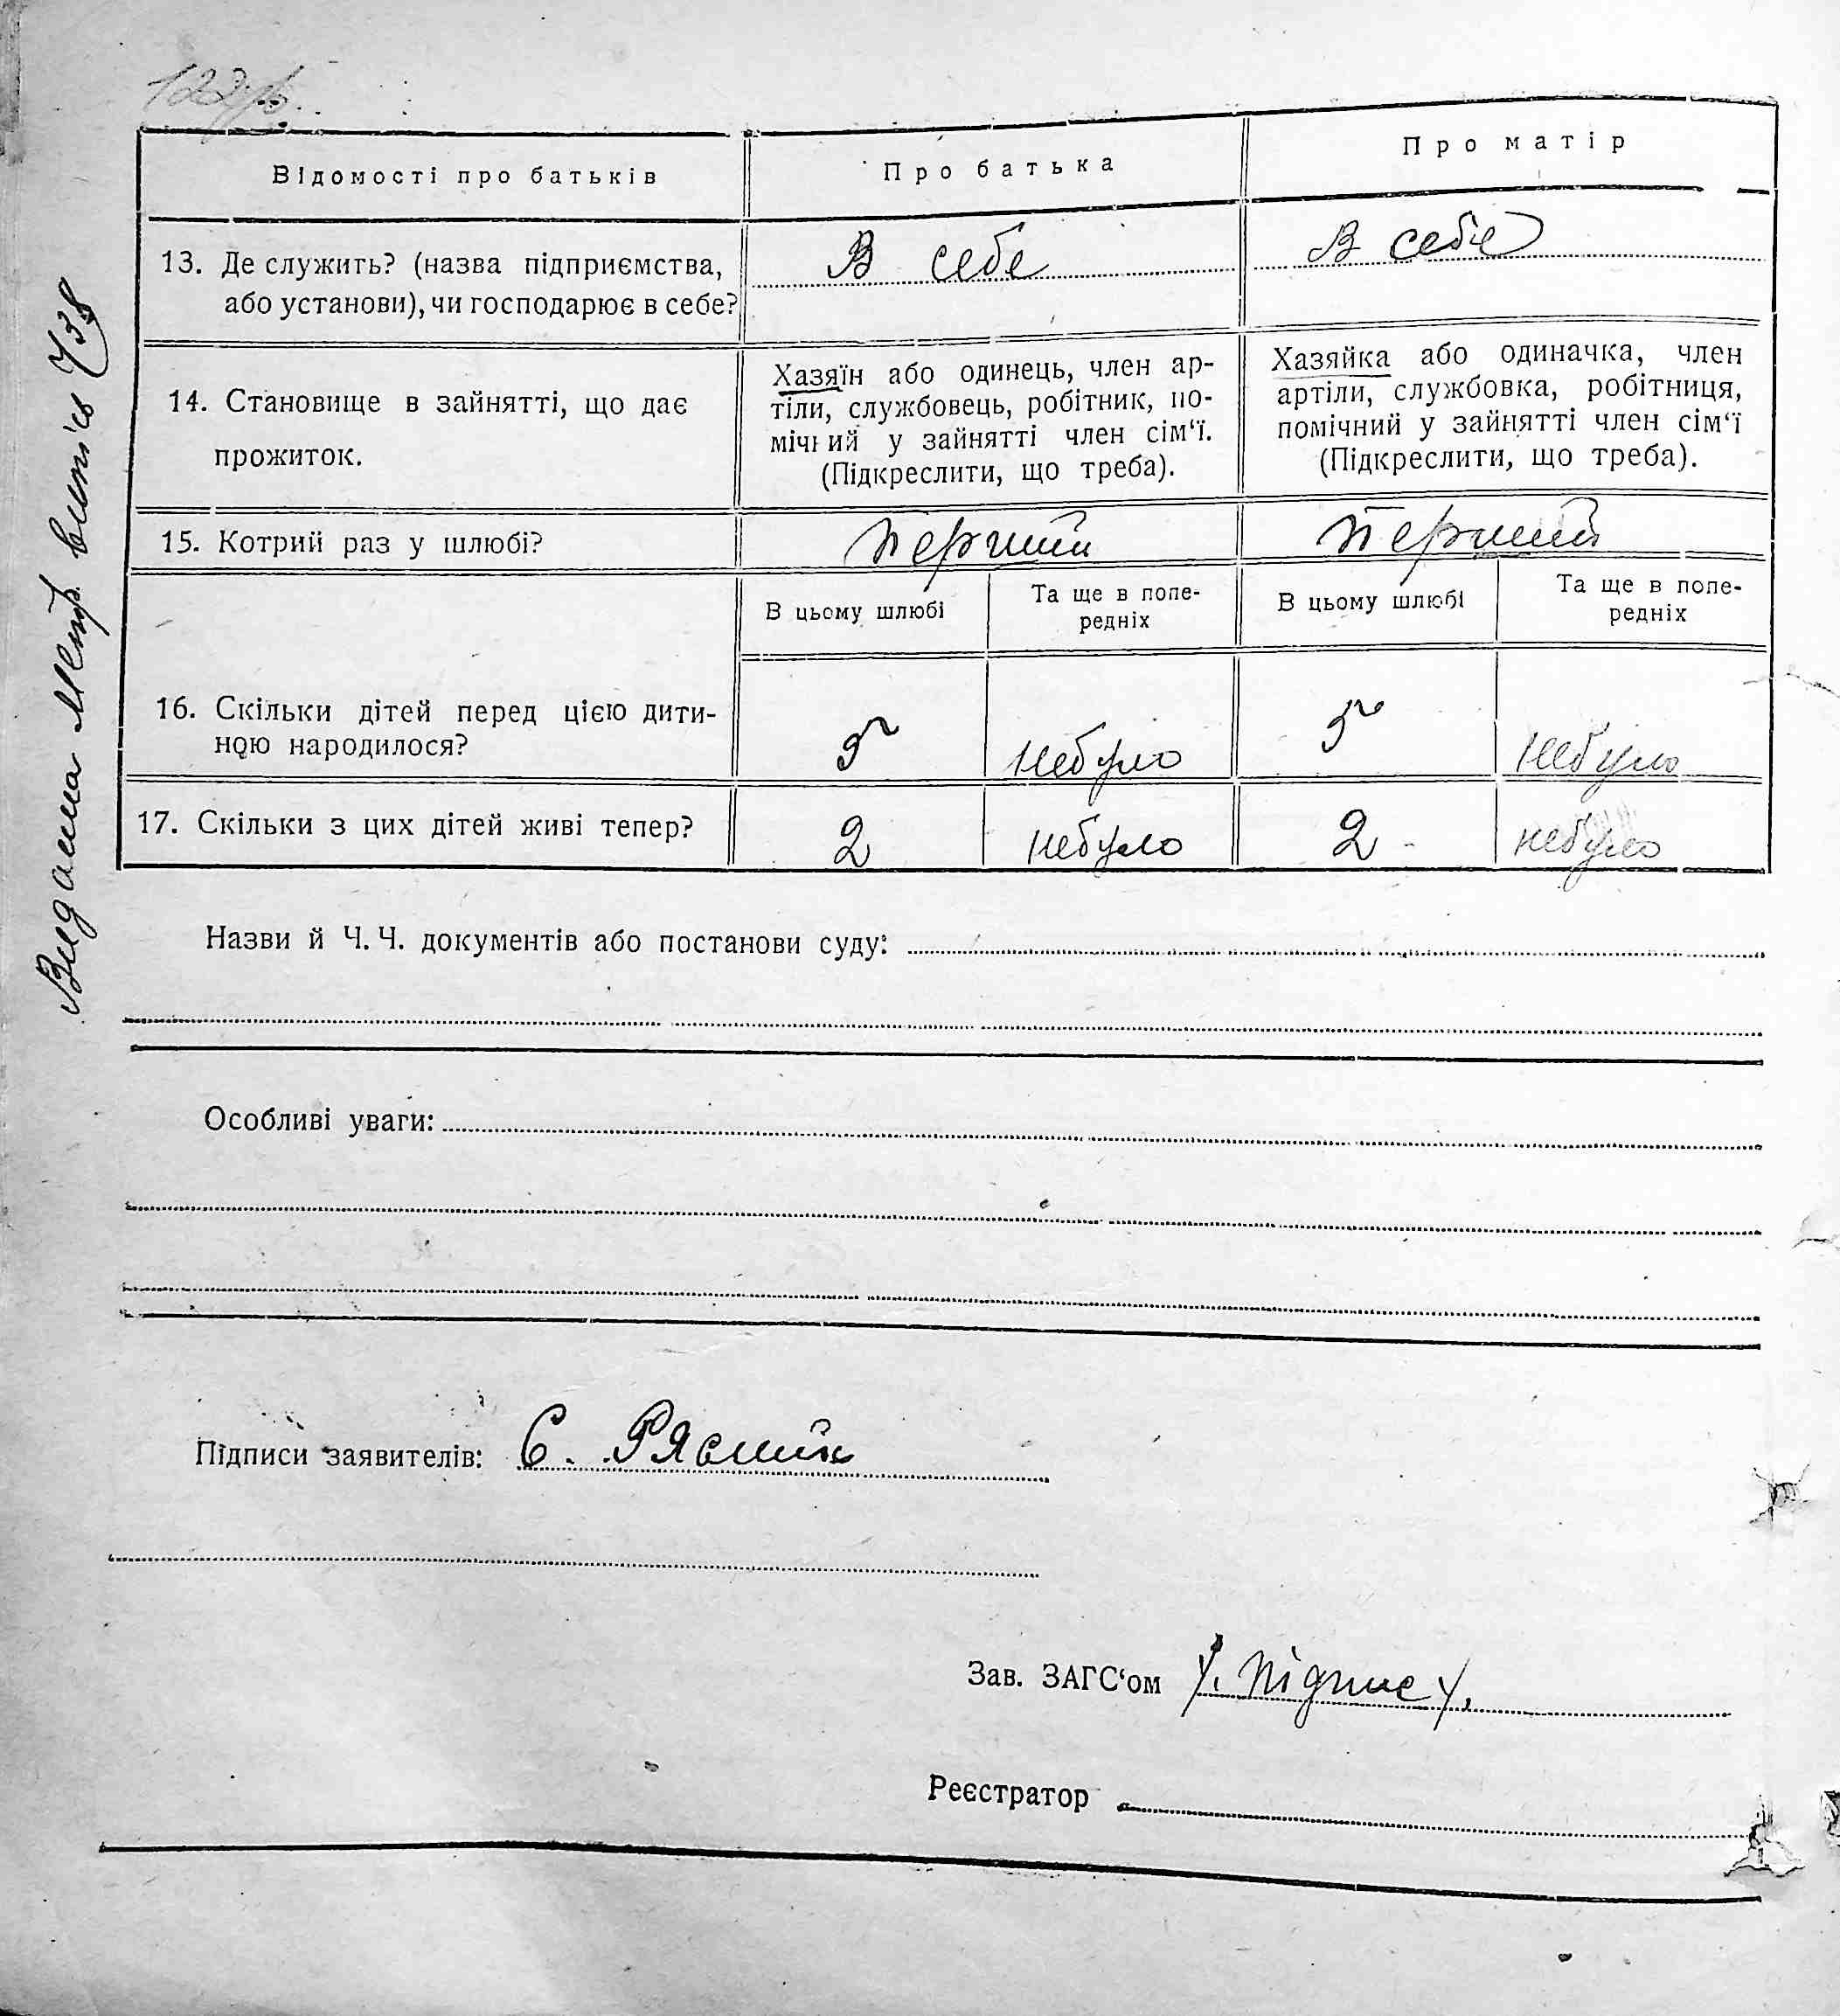 122 р.
Відомості про батьків
Про батька
Про матір
13. Де служить? (назва підприємства,
або установи), чи господарює в себе?
В себе
В себе
14. Становище в зайнятті, що дає
прожиток.
Хазяїн або одинець, член ар-
тіли, службовець, робітник, по-
мічний у зайнятті член сім'ї.
(Підкреслити, що треба).
Хазяйка або одиначка, член
артіли, службовка, робітниця,
помічний у зайнятті член сім'ї
(Підкреслити, що треба).
15. Котрий раз у шлюбі?
перший
перший
В цьому шлюбі
Та ще в попе-
редніх
В цьому шлюбі
Та ще в попе-
редніх
16. Скільки дітей перед цією дити-
ною народилося?
5
небуло
5
небуло
17. Скільки з цих дітей живі тепер?
2
небуло
2
небуло
Видана Метр. випись 738
Назви й Ч. Ч. документів або постанови суду:
Особливі уваги:
Підписи заявителів: С. Рясний
Зав. ЗАГС'ом /. підпис /.
Реєстратор